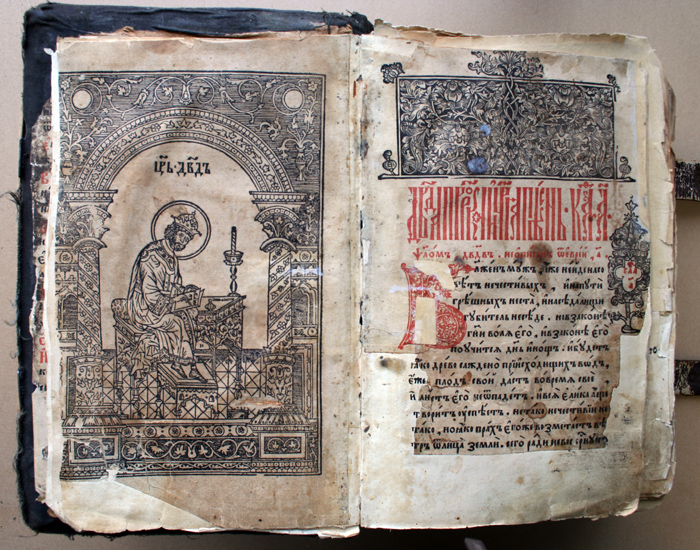 Цр҃ь · Дв҃дъ
Дв҃да пѣснь · каѳ · а҃
ѱ҃ломъ, дв҃двъ. а҃
Блаженъ мꙋжъ, иже неиде на со
вѣтъ нечестивыхъ, и на пꙋти
грѣшныхъ неста, и на сѣдалищи
гꙋбитель неседе. но въ законѣ
гн҃и волѧ его, и въ законѣ его
поꙋчитсѧ дн҃ь и нощъ. и бꙋдетъ
ꙗко древо саждено при исходищихъ водъ,
еже плодъ свои дастъ во времѧ свое
и листъ его не ѿпадетъ. и всѧ елика аще
творитъ ꙋспѣетъ. не тако нечестивіи не
тако, но ꙗко прахъ егоже возметаетъ вѣ
тръ ѿ лица земли. сего ради не